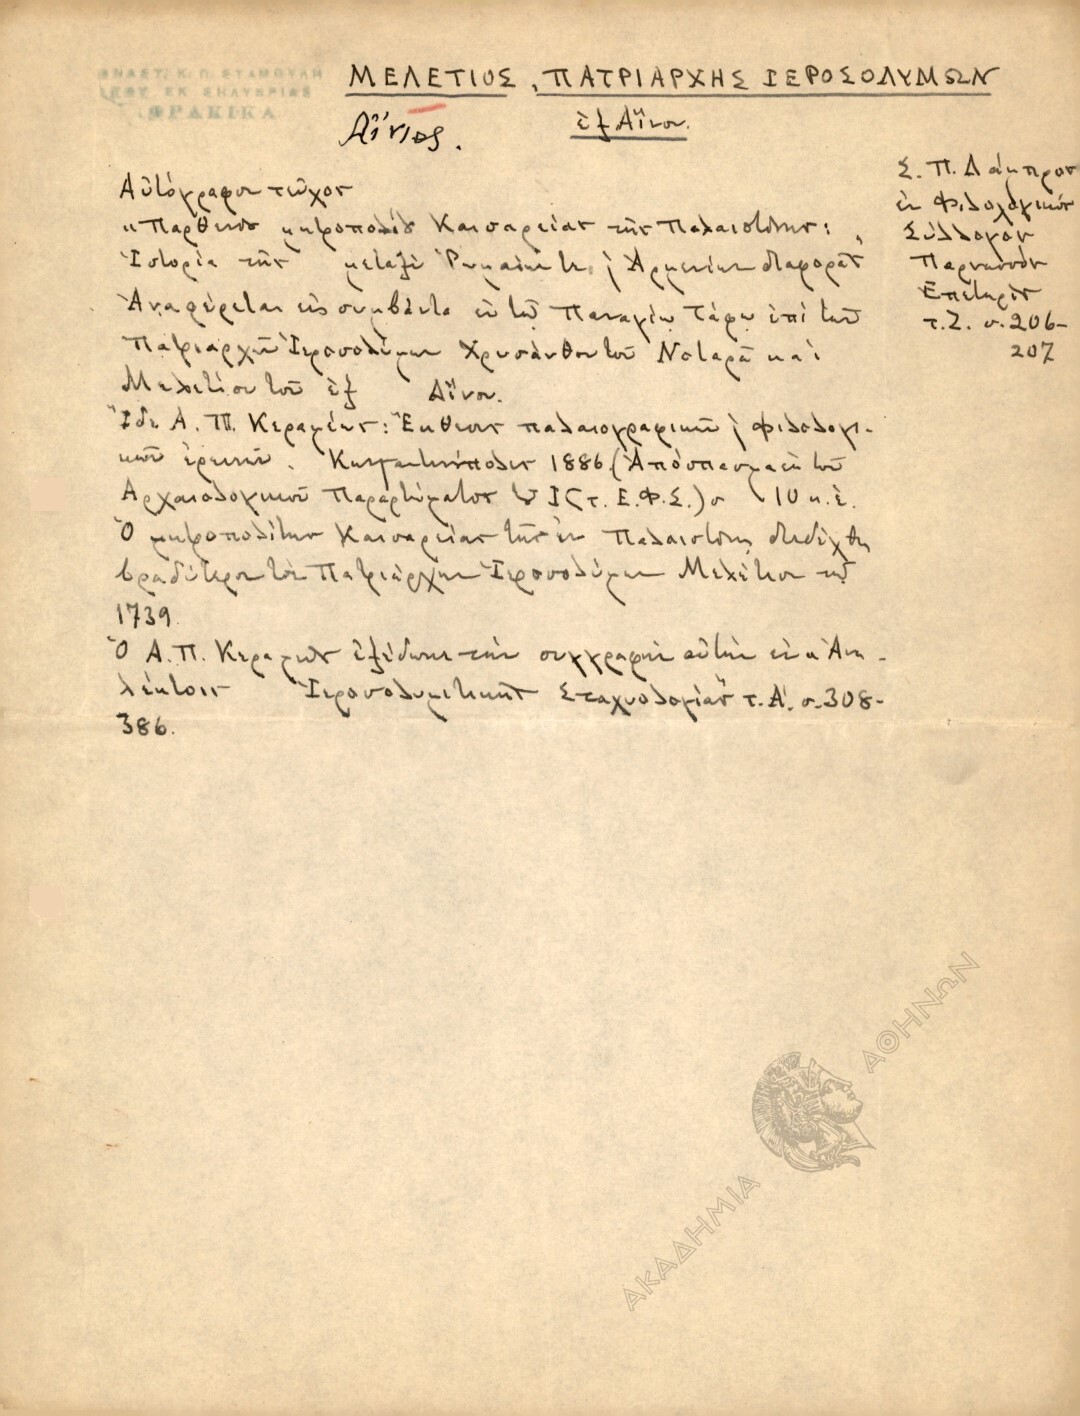 ΑΝΑΣΤ. Κ. Π. ΣΤΑΜΟΥΛΗ
ΤΟΥ ΕΚ ΣΗΛΥΒΡΙΑΣ
ΘΡΑΚΙΚΑ
ΜΕΛΕΤΙΟΣ, ΠΑΤΡΙΑΡΧΗΣ ΙΕΡΟΣΟΛΥΜΩΝ
ἐξ Αἴνου.
Αἴνιος.
Σ. Π. Λάμπρος
ἐν Φιλολογικός
Σύλλογον
Παρνασσόν
Ἐπετηρίς
τ. Ζ. σ. 206-
207
Αὐτόγραφον τεῦχος
"Παρθενίου μητροπολίτου Καισαρείας τῆς Παλαιστίνης:
Ἱστορία τῆς μεταξὺ Ῥωμαίων τε καὶ Ἀρμενίων διαφορᾶς"
Ἀναφέρεται εἰς συμβάντα ἐν τῷ Παναγίῳ Τάφῳ ἐπὶ τῶν
Πατριαρχῶν Ἱεροσολύμων Χρυσάνθου τοῦ Νοταρᾶ καὶ
Μελετίου τοῦ ἐξ Αἴνου.
Ἴδε Α. Π. Κεραμέως: Ἔκθεσις παλαιογραφικῶν καὶ φιλολογι-
κῶν ἐρευνῶν. Κωνσταντινούπολις 1886 (Ἀπόσπασμα ἐκ τοῦ
Ἀρχαιολογικοῦ Παραρτήματος τ. ΙϚ τ. Ε.Φ.Σ.) σ 10 κ. ἑ.
Ὁ μητροπολίτης Καισαρείας τῆς ἐν Παλαιστίνῃ διεδέχθη
βραδύτερον τὸν Πατριάρχην Ἱεροσολύμων Μελέτιον τῷ
1739.
Ὁ Α. Π. Κεραμεὺς ἐξέδωκε τὴν συγγραφὴν αὐτὴν ἐν "Ἀνα-
λέκτοις Ἱεροσολυμιτικῆς Σταχυολογίας" τ. Α'. σ. 308-
386.
ΑΚΑΔΗΜΙΑ ΑΘΗΝΩΝ